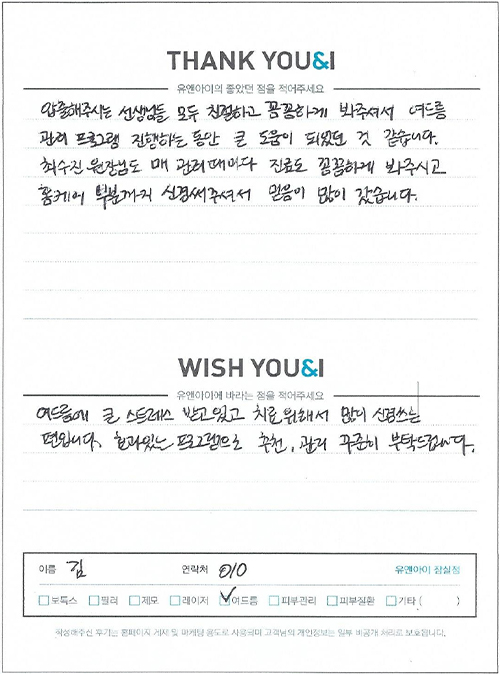 THANK YOU&I
유앤아이의 좋았던 점을 적어주세요
압출해주시는 선생님들 모두 친절하고 꼼꼼하게 봐주셔서 여드름
관리 프로그램 진행하는 동안 큰 도움이 되었던 것 같습니다.
최수진 원장님도 매 관리때마다 진료도 꼼꼼하게 봐주시고
홈케어 부분까지 신경써주셔서 믿음이 많이 갔습니다.
WISH YOU&I
유앤아이에 바라는 점을 적어주세요
여드름에 큰 스트레스 받고있고 치료 위해서 많이 신경쓰는
편입니다. 효과있는 프로그램으로 추천, 관리 꾸준히 부탁드립니다.
이름 김 연락처 010 유앤아이 잠실점
보톡스 필러 제모 레이저 여드름 피부관리 피부질환 기타 ( )
작성해주신 후기는 홈페이지 게재 및 마케팅 용도로 사용되며 고객님의 개인정보는 일부 비공개 처리로 보호됩니다.